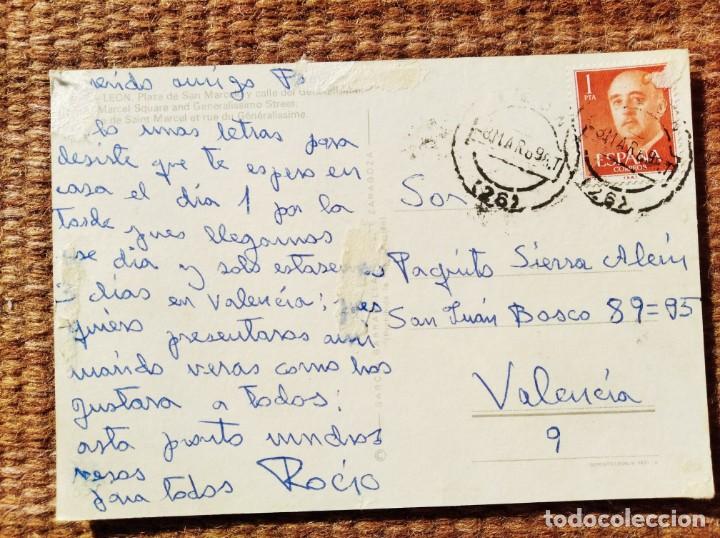 rido amigo Pa
LEON. Plaza de San Marcelo y calle del Generalísimo
Marcel Square and Generalissimo Street
de Saint Marcel et rue du Généralissime.
lo unas letras para
desirte que te espero en
casa el día 1 por la
tarde pues llegamos
ese dia y solo estaremos
3 días en Valencia; pues
quiero presentaros a mi
marido veras como hos
gustara a todos:
asta pronto muchos
vesos
para todos Rocio
1
PTA
ESPAÑA
CORREOS
Son
Paquito Sierra Aleín
San Juán Bosco 89=95
Valencia
9
ZARAGOZA
todocoleccion